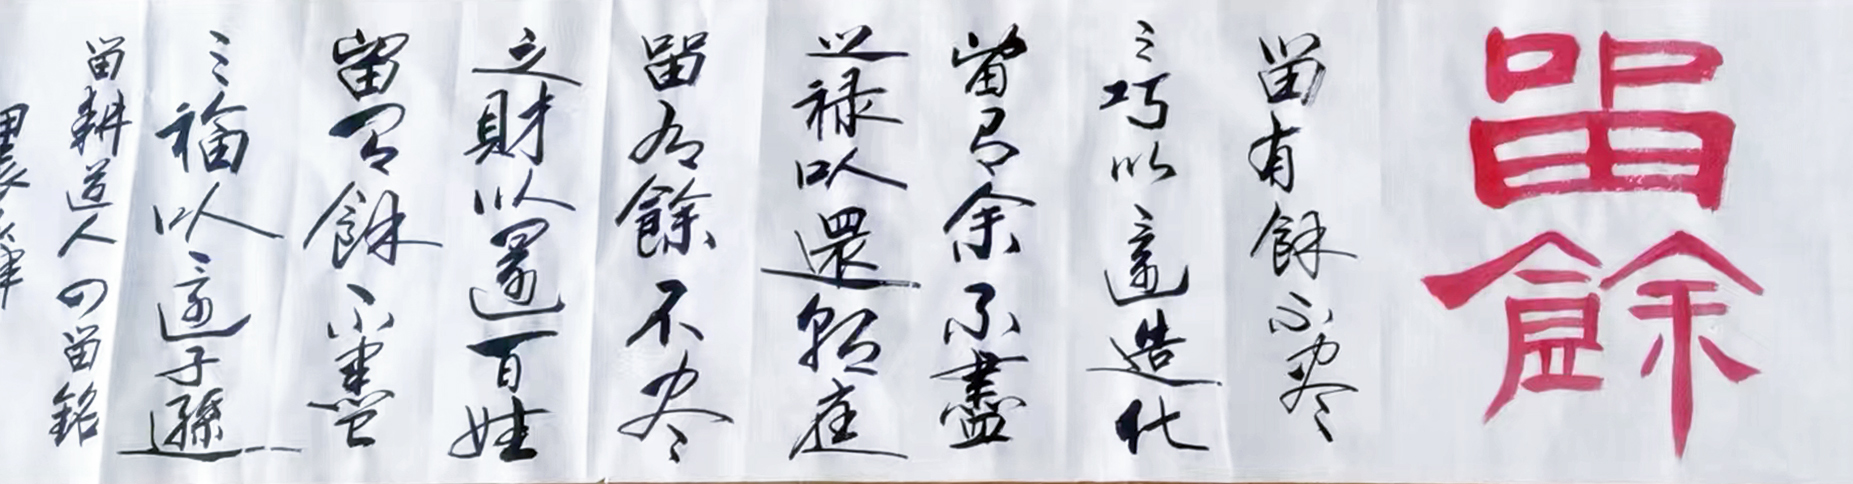 留餘
留有餘不尽
之巧以還造化
留有余不盡
之禄以還朝廷
留有餘不尽
之財以還百姓
留有餘不盡
之福以還子孫
留耕道人四留銘